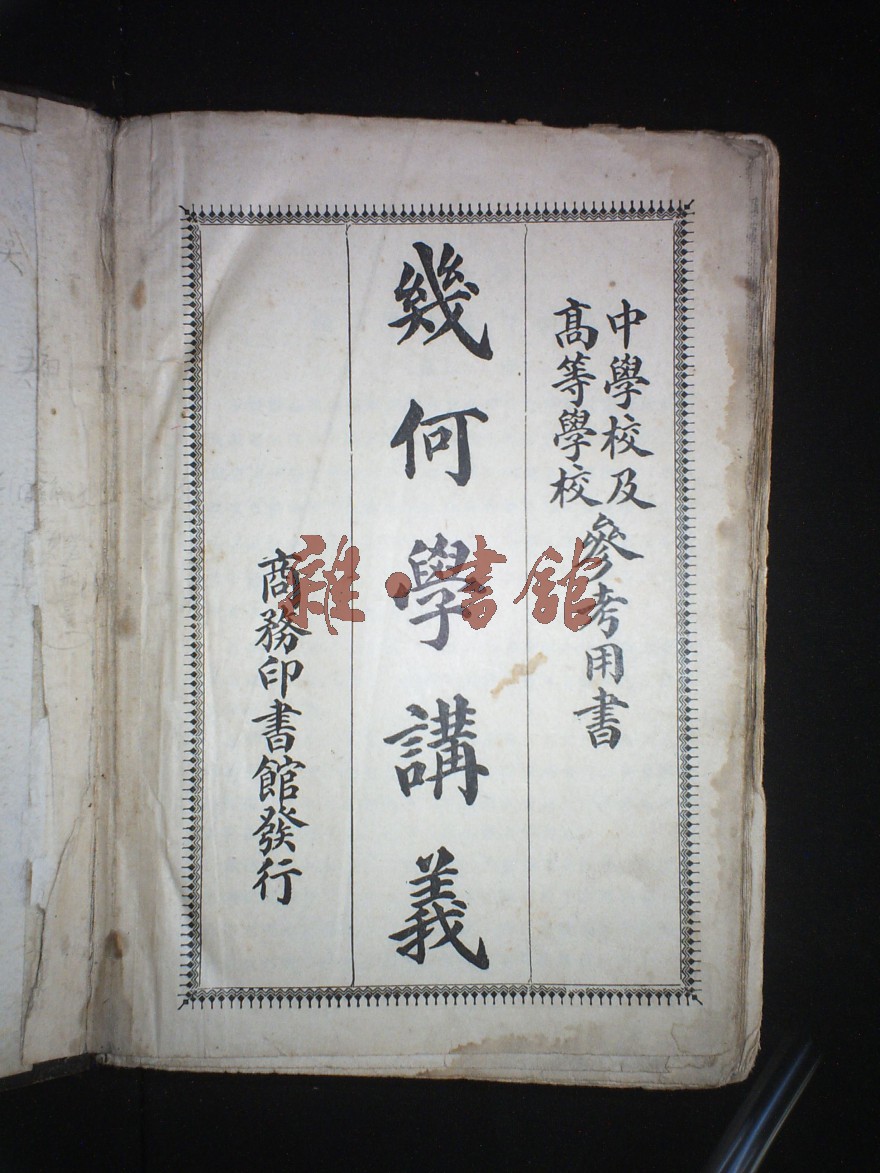 中學校及
高等學校
參考用書
幾何學講義
商務印書館發行
雜·書館